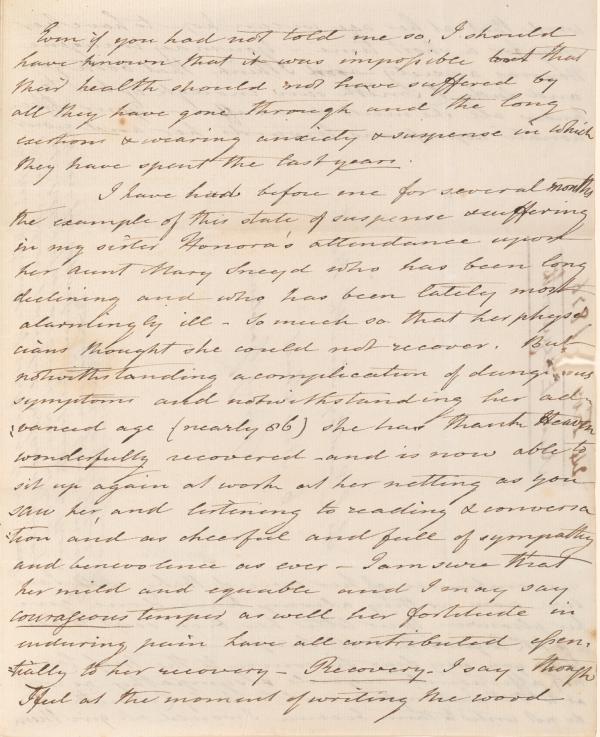 Even if you had not told me so, I should
have known that it was impossible but that
their health should not have suffered by
all they have gone through and the long
exertions & wearing anxiety & suspense in which
they have spent the last years.
I have had before me for several months
the example of this state of suspense & suffering
in my sister Honora's attendance upon
her aunt Mary Sneyd who has been long
declining and who has been lately most
alarmingly ill - So much so that her physi
cians thought she could not recover. But
notwithstanding a complication of dangerous
symptoms and notwithstanding her ad-
vanced age (nearly 86) she has thank Heaven
wonderfully recovered - and is now able to
sit up again at work at her netting as you
saw her and listening to reading & conversa
tion and as cheerful and full of sympathy
and benevolence as ever - I am sure that
her mild and equable and I may say
courageous temper as well her fortitude in
enduring pain have all contributed essen-
tially to her recovery - Recovery I say - though
I feel at the moment of writing the word